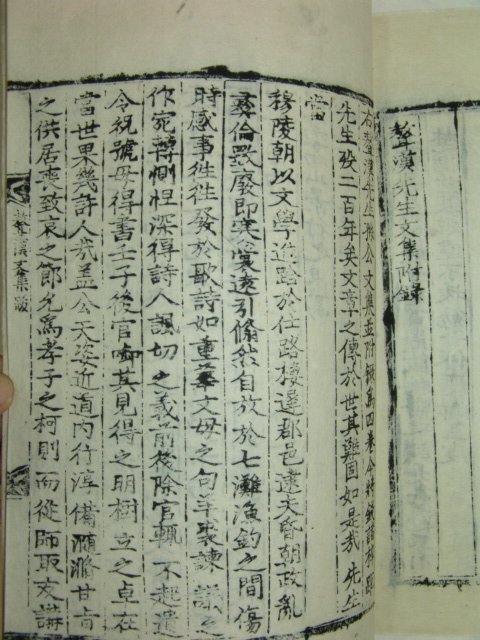 聱漢先生文集附錄
右聱漢先生孫公文集並附錄爲四卷今將鋟諸梓
先生歿二百年矣文章之傳於世其難固如是哉 先生
當
穆陵朝以文學進路於仕路棲遑郡邑逮夫昏朝政亂
彛倫斁廢即褰裳遠引翛然自放於七灘漁釣之間傷
時感事徃徃發於歌詩如重華文母之句羊裘諫議之
作宛轉惻悝深得詩人諷切之義前後除官輒不起遺
令祝號毋得書壬子後官啣其見得之明樹立之卓在
當世果幾許人哉盖公天姿近道內行淳備滫瀡甘旨
之供居喪致哀之節允爲孝子之柯則而從師取友講
聱漢文集跋